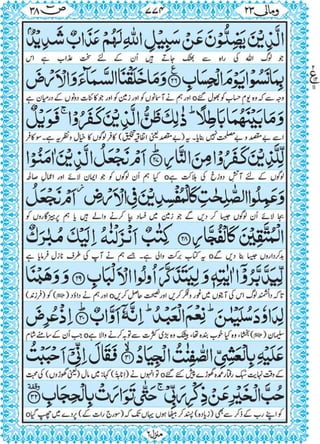 ومالی ۲۳ ۷۷۴ ص ۳۸
الَّذِيْنَ يَضِلُّوْنَ عَنْ سَبِيْلِ اللّٰهِ لَهُمْ عَذَابٌ شَدِيْدٌۢ
جو لوگ اللہ کی راہ سے بھٹک جاتے ہیں اُن کے لئے سخت عذاب ہے اس
بِمَا نَسُوْا يَوْمَ الْحِسَابِ ﴿۲۶﴾ وَمَا خَلَقْنَا السَّمَآءَ وَالْاَرْضَ
وجہ سے کہ وہ یومِ حساب کو بھول گئے o اور ہم نے آسمانوں کو اور زمین کو اور جو کائنات دونوں کے درمیان ہے
وَمَا بَيْنَهُمَا بَاطِلًا ؕ ذٰلِكَ ظَنُّ الَّذِيْنَ كَفَرُوْا ۚ فَوَيْلٌ
اسے بے مقصد و بے مصلحت نہیں بنایا۔ یہ (بے مقصد یعنی اتفاقیہ تخلیق) کافر لوگوں کا خیال و نظریہ ہے۔ سو کافر
لِّلَّذِيْنَ كَفَرُوْا مِنَ النَّارِ ﴿۲۷﴾ اَمْ نَجْعَلُ الَّذِيْنَ اٰمَنُوْا
لوگوں کے لئے آتشِ دوزخ کی ہلاکت ہے o کیا ہم اُن لوگوں کو جو ایمان لائے اور اعمالِ صالحہ
وَعَمِلُوا الصّٰلِحٰتِ كَالْمُفْسِدِيْنَ فِي الْاَرْضِ ۫ اَمْ نَجْعَلُ
بجا لائے اُن لوگوں جیسا کر دیں گے جو زمین میں فساد بپا کرنے والے ہیں یا ہم پرہیزگاروں کو
الْمُتَّقِيْنَ كَالْفُجَّارِ ﴿۲۸﴾ كِتٰبٌ اَنْزَلْنٰهُ اِلَيْكَ مُبٰرَكٌ
بدکرداروں جیسا بنا دیں گے o یہ کتاب برکت والی ہے۔ جسے ہم نے آپ کی طرف نازل فرمایا ہے
لِّيَدَّبَّرُوْۤا اٰيٰتِهٖ وَلِيَتَذَكَّرَ اُولُوا الْاَلْبَابِ ﴿۲۹﴾ وَوَهَبْنَا
تاکہ دانشمند لوگ اس کی آیتوں میں غور و فکر کریں اور نصیحت حاصل کریں o اور ہم نے داؤد (علیہ السلام) کو (فرزند)
لِدَاوٗدَ سُلَيْمٰنَ ؕ نِعْمَ الْعَبْدُ ؕ اِنَّهٗۤ اَوَّابٌ ﴿۳۰﴾ اِذْ عُرِضَ
سلیمان (علیہ السلام) بخشا، وہ کیا خوب بندہ تھا، بے شک وہ بڑی کثرت سے توبہ کرنے والا ہے o جب اُن کے سامنے شام
عَلَيْهِ بِالْعَشِيِّ الصّٰفِنٰتُ الْجِيَادُ ﴿۳۱﴾ فَقَالَ اِنِّيْۤ اَحْبَبْتُ
کے وقت نہایت سُبک رفتار عمدہ گھوڑے پیش کئے گئے o تو انہوں نے (اِنابۃً) کہا: میں مال (یعنی گھوڑوں) کی محبت
حُبَّ الْخَيْرِ عَنْ ذِكْرِ رَبِّيْ ۚ حَتّٰى تَوَارَتْ بِالْحِجَابِ ﴿۳۲﴾
کو اپنے رب کے ذکر سے بھی (زیادہ) پسند کر بیٹھا ہوں یہاں تک کہ (سورج رات کے) پردے میں چھپ گیا o
منزل ۶